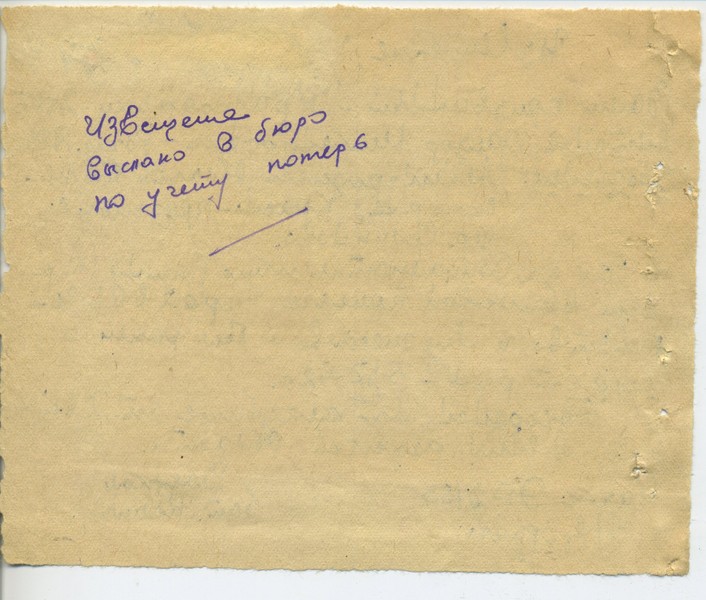 Извещение
выслано в бюро
по учету потерь